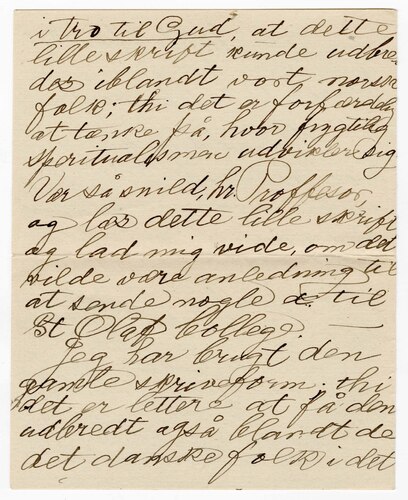 i tro til Gud, at dette
lille skrift kunde udbre-
des iblandt vort norske
folk; thi det er forfærdelig
at tænke på, hvor frygtelig
speritualismen udvikler sig
Vær så snild, hr. Proffesor,
og læs dette lille skrift
og lad mig vide, om det
vilde være anledning til
at sende nogle til
St Olaf College.
Jeg har brugt den
gamle skriveform. thi
det er lettere at få den
udbredt også blandt de
det danske folk i det